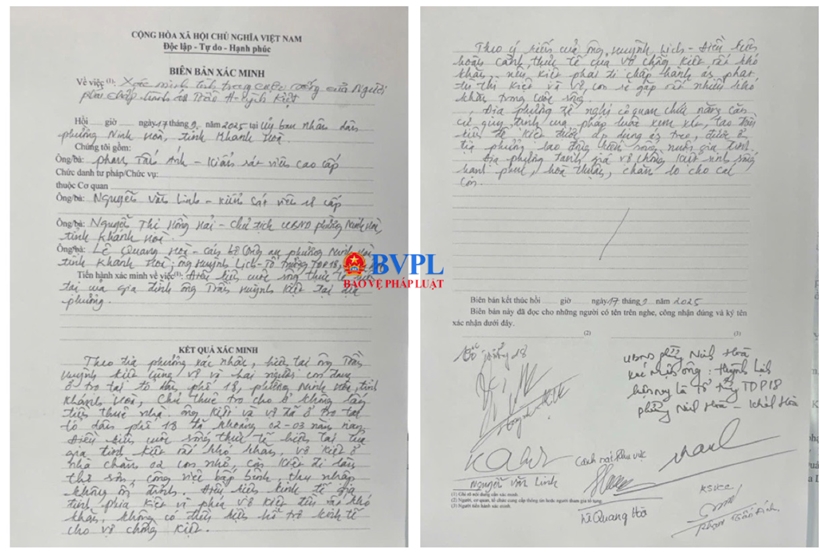 CỘNG HÒA XÃ HỘI CHỦ NGHĨA VIỆT NAM
Độc lập - Tự do - Hạnh phúc
BIÊN BẢN XÁC MINH
Về việc (1): Xác minh tình trạng cuộc sống của Người
phải chấp hành là Trần Huỳnh Kiệt
Hồi giờ ngày 17 tháng 9, năm 2025 tại Ủy ban nhân dân
phường Ninh Hoà, tỉnh Khánh Hoà.
Chúng tôi gồm:
Ông/bà: Phan Tấn Ánh - Kiểm sát viên cao cấp
Chức danh tư pháp/Chức vụ:
thuộc Cơ quan
Ông/bà: Nguyễn Văn Linh - Kiểm sát viên sơ cấp
Ông/bà: Nguyễn Thị Hồng Hải - Chủ tịch UBND phường Ninh Hoà,
tỉnh Khánh Hoà
Ông/bà: Lê Quang Hoà - Cán bộ Công an phường Ninh Hoà,
tỉnh Khánh Hoà; ông Huỳnh Lịch - Tổ trưởng TDP 18,
Tiến hành xác minh về việc (1): Điều kiện cuộc sống thực tế hiện
tại của gia đình ông Trần Huỳnh Kiệt tại địa
phương.
KẾT QUẢ XÁC MINH
Theo địa phương xác nhận, hiện tại ông Trần
Huỳnh Kiệt cùng vợ và hai người con đang
ở trọ tại tổ dân phố 18, phường Ninh Hoà, tỉnh
Khánh Hoà, chủ thuê cho ở không lấy
tiền thuê nhà. Ông Kiệt và vợ đã ở trọ tại
tổ dân phố 18 đã khoảng 02-03 năm nay.
Điều kiện cuộc sống thực tế hiện tại của
gia đình Kiệt rất khó khăn, vợ Kiệt ở
nhà chăm 02 con nhỏ, còn Kiệt đi làm
thợ sơn, công việc bấp bênh, thu nhập
không ổn định. Điều kiện kinh tế gia
đình phía Kiệt và phía vợ Kiệt đều rất khó
khăn, không có điều kiện hỗ trợ kinh tế
cho vợ chồng Kiệt.
Theo ý kiến của ông Huỳnh Lịch - Điều kiện
hoàn cảnh thực tế của vợ chồng Kiệt rất khó
khăn, nếu Kiệt phải đi chấp hành án phạt
tù thì Kiệt và vợ con sẽ gặp rất nhiều khó
khăn trong cuộc sống.
Địa phương đề nghị cơ quan chức năng căn
cứ quy định của pháp luật xem xét, tạo điều
kiện để Kiệt được áp dụng án treo, được ở
địa phương lao động kiếm sống nuôi gia đình.
Địa phương đánh giá vợ chồng Kiệt sinh sống
hạnh phúc, hoà thuận, chăm lo cho các
con.
BVPL
BẢO VỆ PHÁP LUẬT
Biên bản kết thúc hồi giờ ngày 17 tháng 9 năm 2025
Biên bản này đã đọc cho những người có tên trên nghe, công nhận đúng và ký tên
xác nhận dưới đây.
(2) (3)
UBND phường Ninh Hoà
Xác nhận ông: Huỳnh Lịch
hiện nay là Tổ trưởng TDP18
phường Ninh Hoà - Khánh Hoà
Nguyễn Văn Linh
Cảnh sát khu vực
Lê Quang Hoà
KSVCC
Phan Tấn Ánh